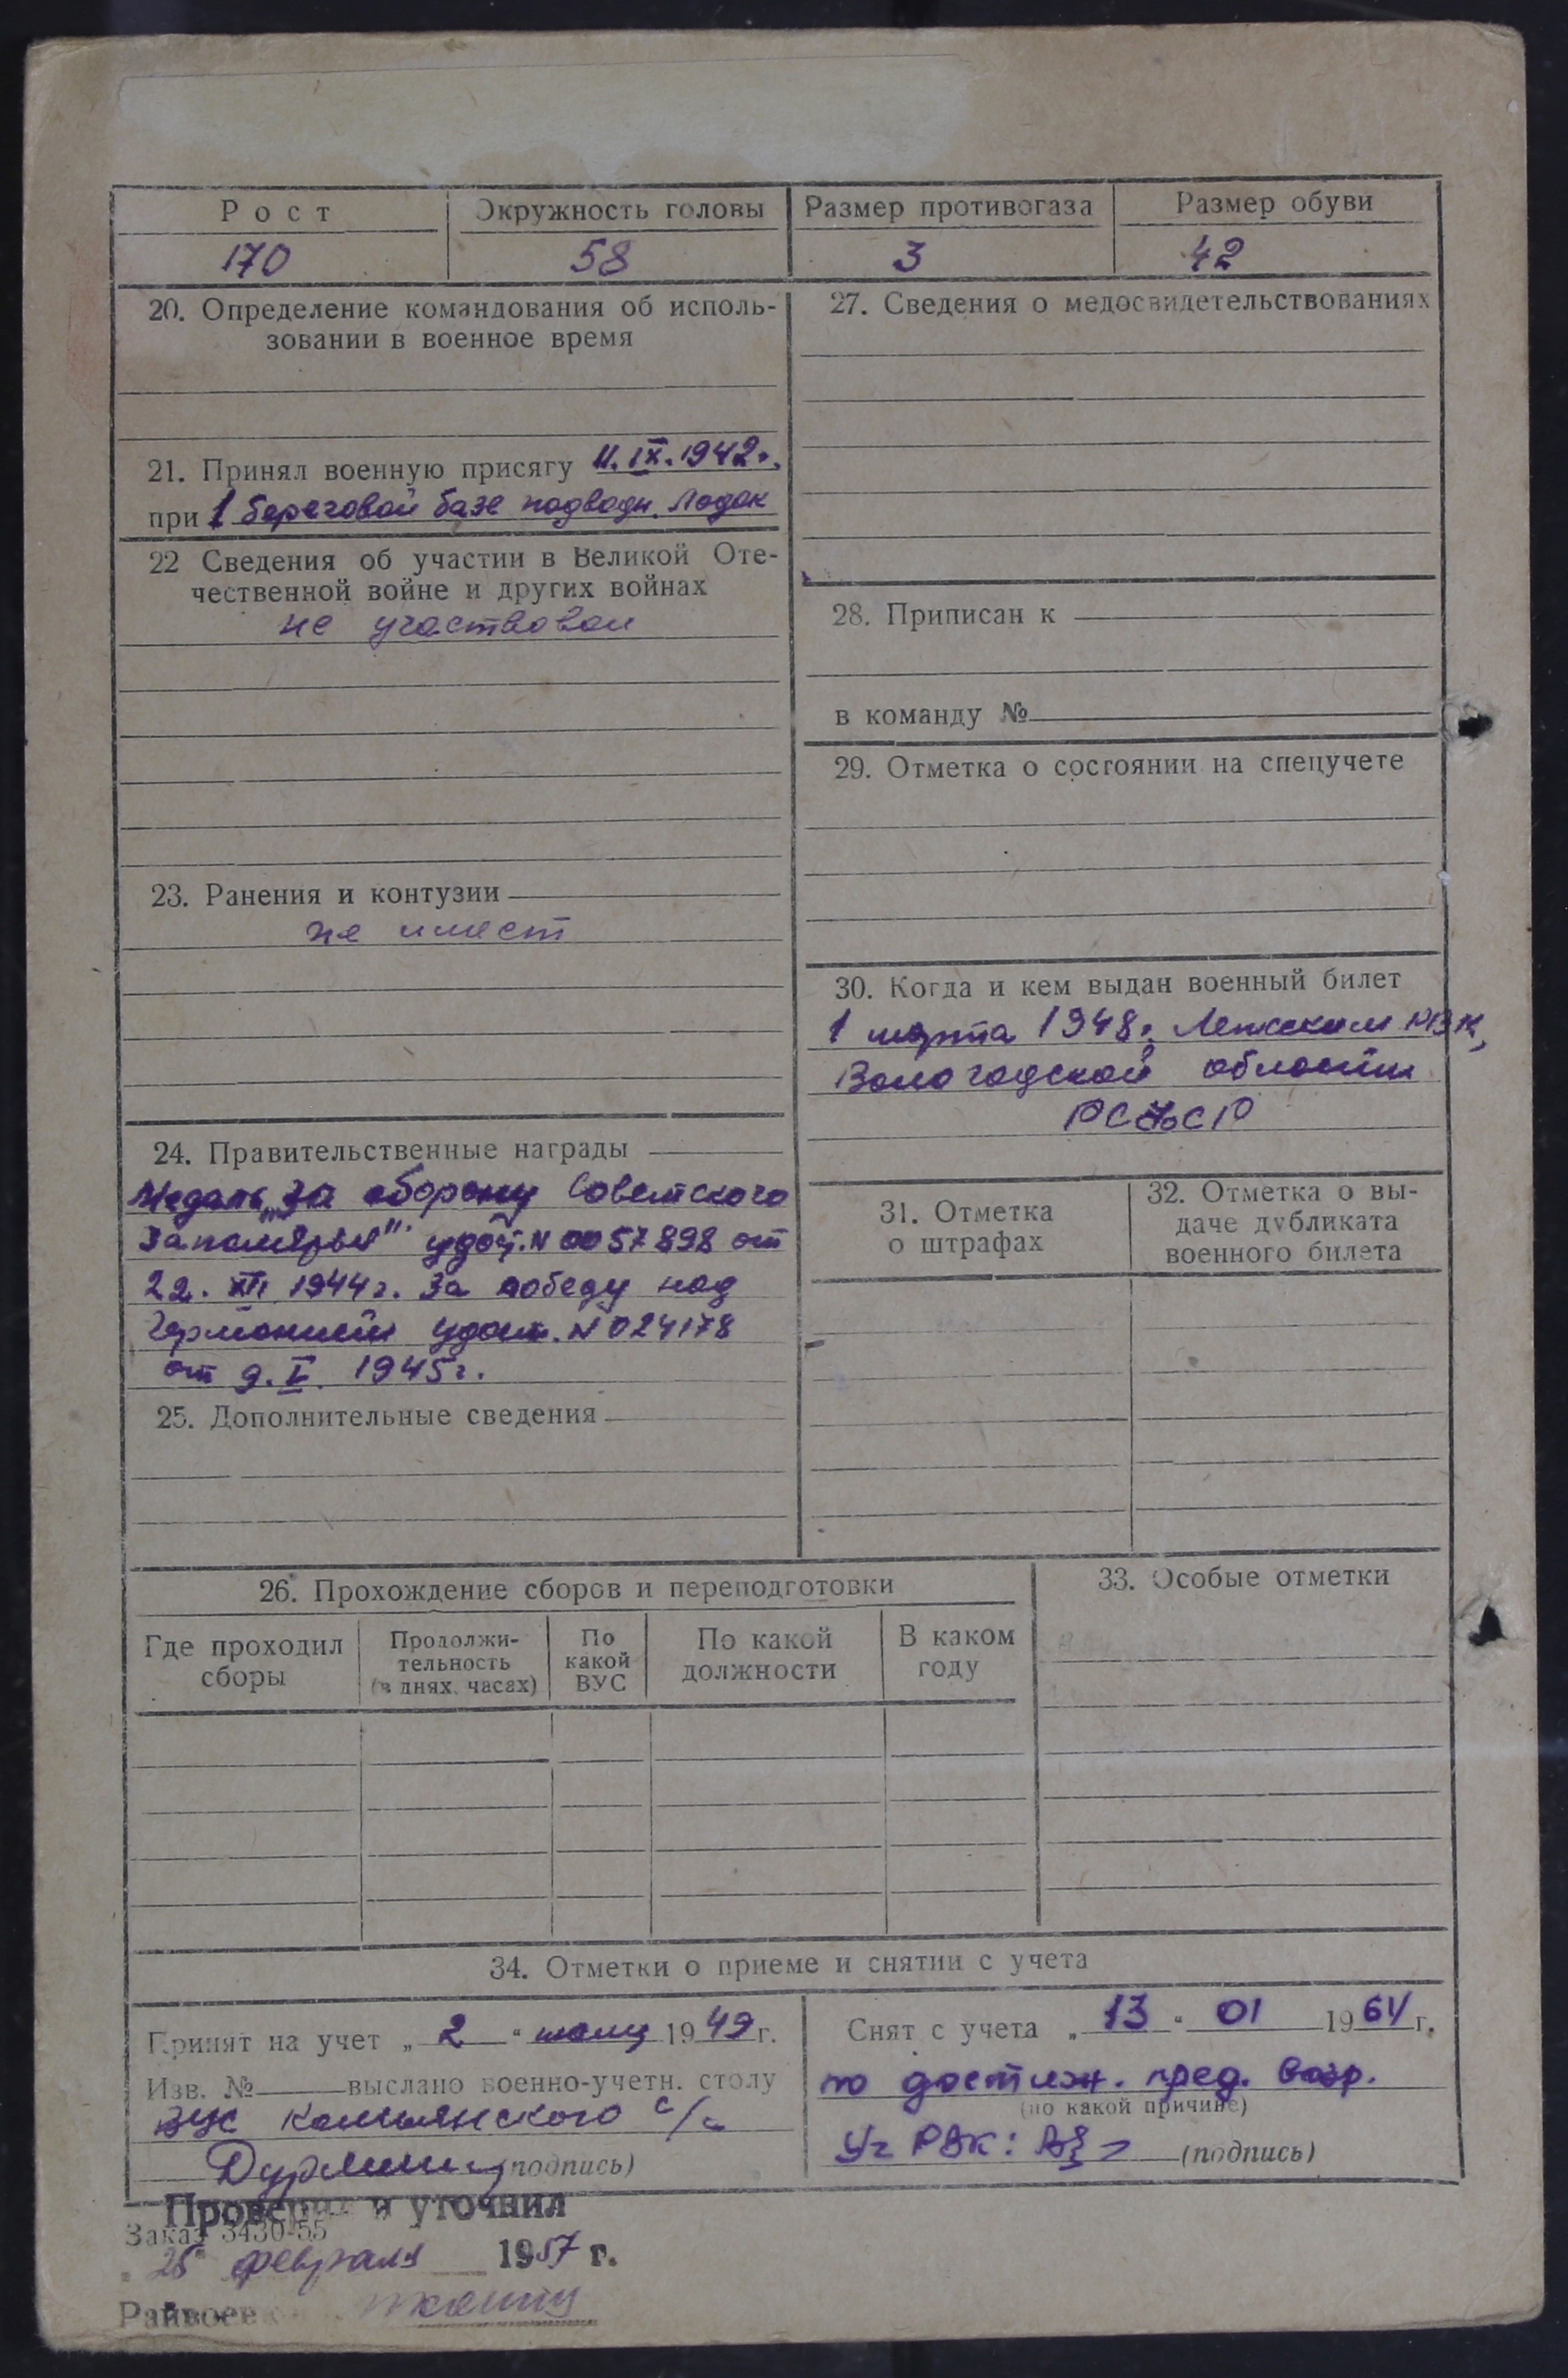 Рост
Окружность головы
Размер противогаза
Размер обуви
170
58
3
42
20. Определение командования об исполь-
зовании в военное время
21. Принял военную присягу 11.IX.1942г.
при 1 береговой базе подводн. лодок
22 Сведения об участии в Великой Оте-
чественной войне и других войнах
не участвовал
23. Ранения и контузии
не имеет
24. Правительственные награды
Медаль „За оборону Советского
Заполярья" удост. N 0057898 от
22. XII 1944г. За победу над
Германией удост. N 024178
от 9. V. 1945г.
25. Дополнительные сведения
27. Сведения о медосвидетельствованиях
28. Приписан к
в команду №
29. Отметка о состоянии на спецучете
30. Когда и кем выдан военный билет
1 марта 1948г. Лежским РВК,
Вологодской области
РСФСР
31. Отметка
о штрафах
32. Отметка о вы-
даче дубликата
военного билета
26. Прохождение сборов и переподготовки
Где проходил
сборы
Продолжи-
тельность
(в днях, часах)
По
какой
ВУС
По какой
должности
В каком
году
33. Особые отметки
34. Отметки о приеме и снятии с учета
Принят на учет „ 2 “ 1949 г.
Изв. № выслано военно-учетн. столу
с/с
(подпись)
Снят с учета „ 13 “ 01 1964 г.
по достиж. пред. возр.
(по какой причине)
РВК:
(подпись)
Проверил и уточнил
Заказ 3430-55
„ 25 " февраля 1957 г.